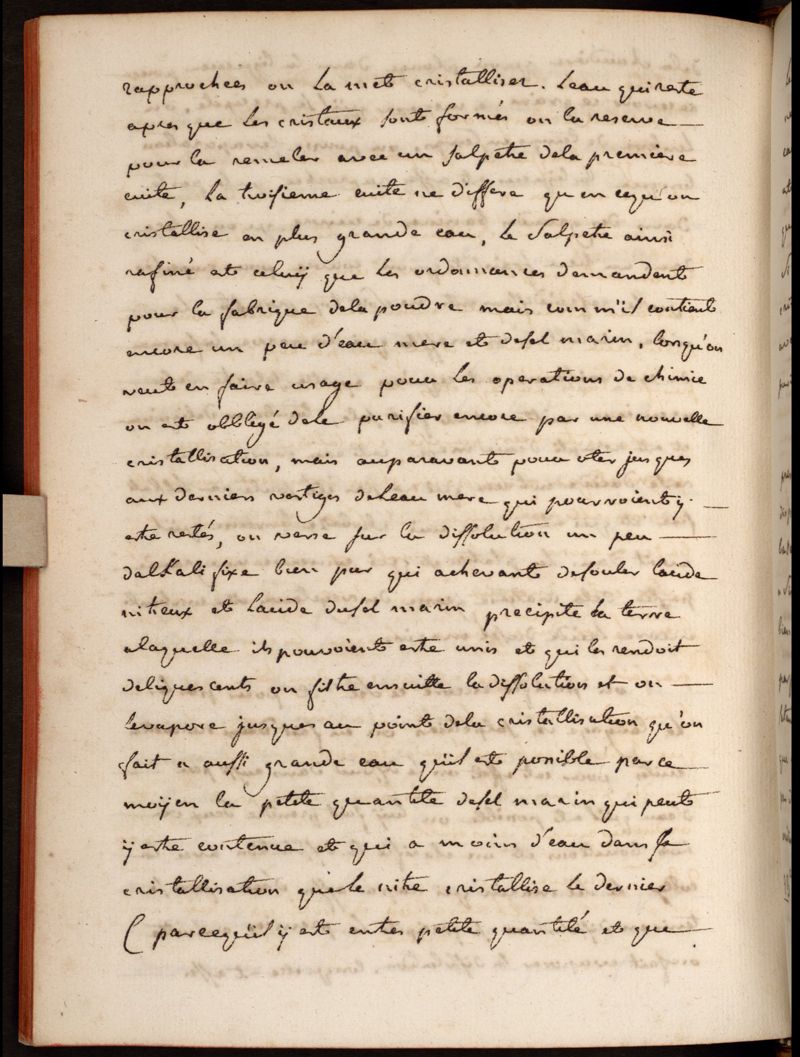 rapprochées on la met cristalliser. Leau qui reste
apres que les cristaux sont formés on la reserve
pour la remeler avec un salpetre dela premiere
cuite, la troisieme cuite ne differe qu'en cequ'on
cristallise en plus grande eau, le salpetre ainsi
rafiné est celuÿ que les ordonnances demandent
pour la fabrique dela poudre mais comm'il contient
encore un peu d'eau mere et desel marin, lorsqu'on
veut en faire usage pour les operations de chimie
on est obblegé dele purifier encore par une nouvelle
cristallisation, mais auparavant pour oter jusques
aux derniers vertiges deleau mere qui pourroient y
estre restés, on verse sur la dissolution un peu
dalkali fixe bien pur qui achevant desouler lacide
nitreux et lacide dusel marin precipite la terre
alaquelle ils pouvoient estre unis et qui les rendoit
deliquescents on filtre ensuitte la dissolution et on
levapore jusques au point dela cristallisation qu'on
fait a aussi grande eau qüil est possible par ce
moÿen la petite quantité desel marin qui peut
ÿ estre contenue et qui a moins d'eau dans sa
cristallisation que le nitre cristallise le dernier
( parcequ'il ÿ est entres petite quantité et que